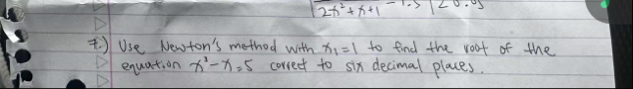 2x²+x+1
7.) Use Newton's method with x₁=1 to find the root of the
equation x³-x=5 correct to six decimal places.